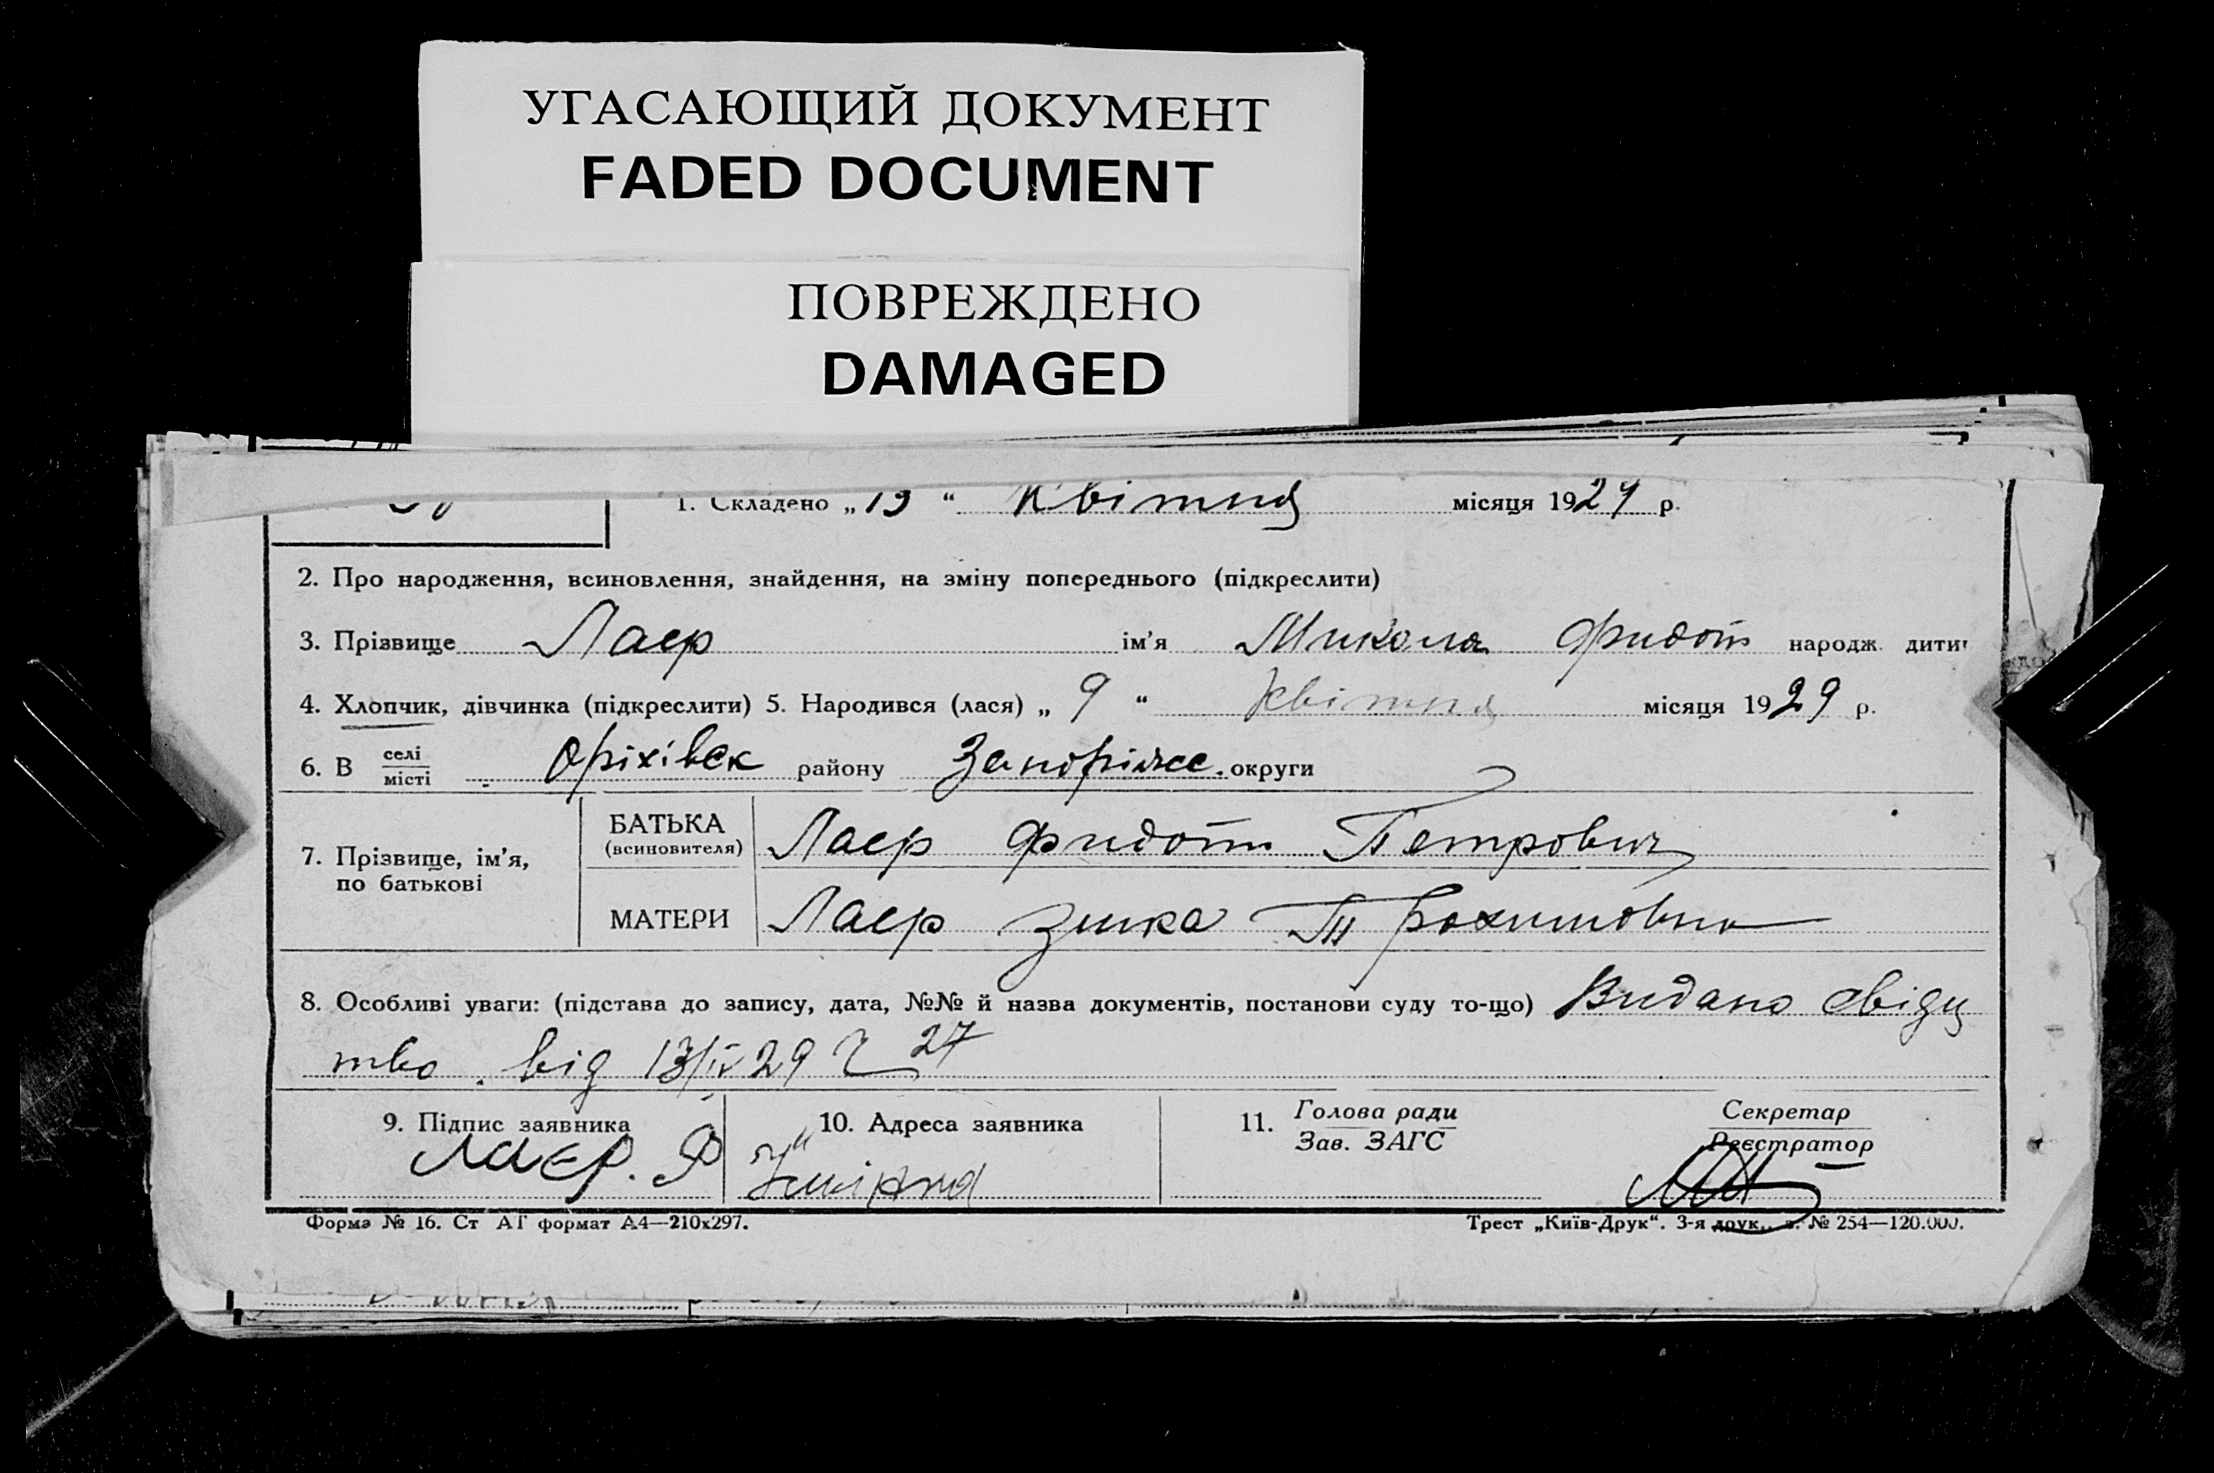 УГАСАЮЩИЙ ДОКУМЕНТ
FADED DOCUMENT
ПОВРЕЖДЕНО
DAMAGED
1. Складено „ 13 “ Квітня місяця 1929 р.
2. Про народження, всиновлення, знайдення, на зміну попереднього (підкреслити)
3. Прізвище Лаер ім’я Микола Фридот народж. дити
4. Хлопчик, дівчинка (підкреслити) 5. Народився (лася) „ 9 “ Квітня місяця 1929 р.
6. В селі місті Оріхівск району Запоріжже. округи
7. Прізвище, ім’я, по батькові
БАТЬКА (всиновителя) Лаер Фридот Петрович
МАТЕРИ Лаер
8. Особливі уваги: (підстава до запису, дата, №№ й назва документів, постанови суду то-що) Видано свідц
тво. від 13/IV 29 27
9. Підпис заявника 10. Адреса заявника 11. Голова ради Секретар
Зав. ЗАГС Реєстратор
Лаєр. Ф
Форма № 16. Ст АГ формат А4—210х297. Трест „Київ-Друк“. 3-я друк., з. № 254—120.000.